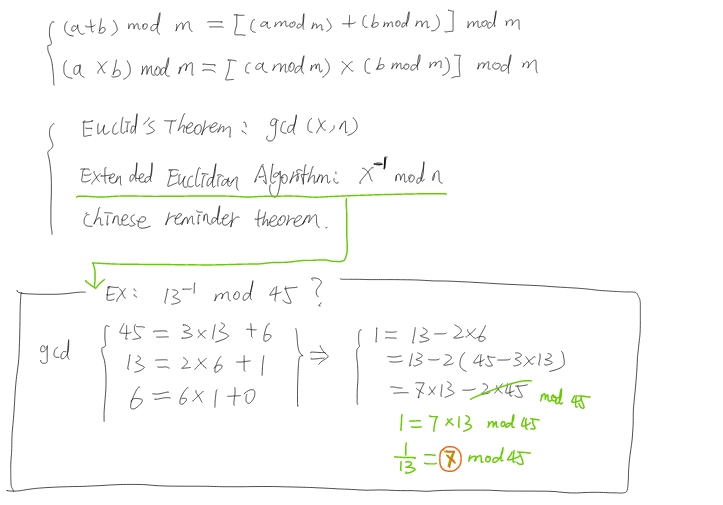 (a+b) mod m = [(a mod m) + (b mod m)] mod m
(a × b) mod m = [(a mod m) × (b mod m)] mod m
Euclid's Theorem: gcd (x,n)
Extended Euclidian Algorithm: x⁻¹ mod n
chinese reminder theorem.
EX: 13⁻¹ mod 45 ?
gcd
45 = 3×13 + 6
13 = 2×6 + 1
6 = 6×1+0
⇒
1 = 13 - 2×6
= 13 - 2(45 - 3×13)
= 7×13 - 2×45 mod 45
1 = 7×13 mod 45
1/13 = 7 mod 45